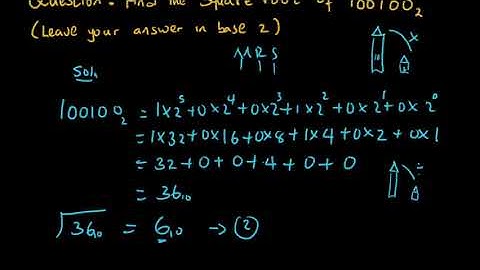 Question: Find the square root of 100100₂
(Leave your answer in base 2)
M R S
Soln
100100₂ = 1x2⁵+0x2⁴+0x2³+1x2²+0x2¹+0x2⁰
= 1x32+0x16+0x8+1x4+0x2+0x1
= 32+0+0+4+0+0
= 36₁₀
√36₁₀ = 6₁₀ → ②
x
÷